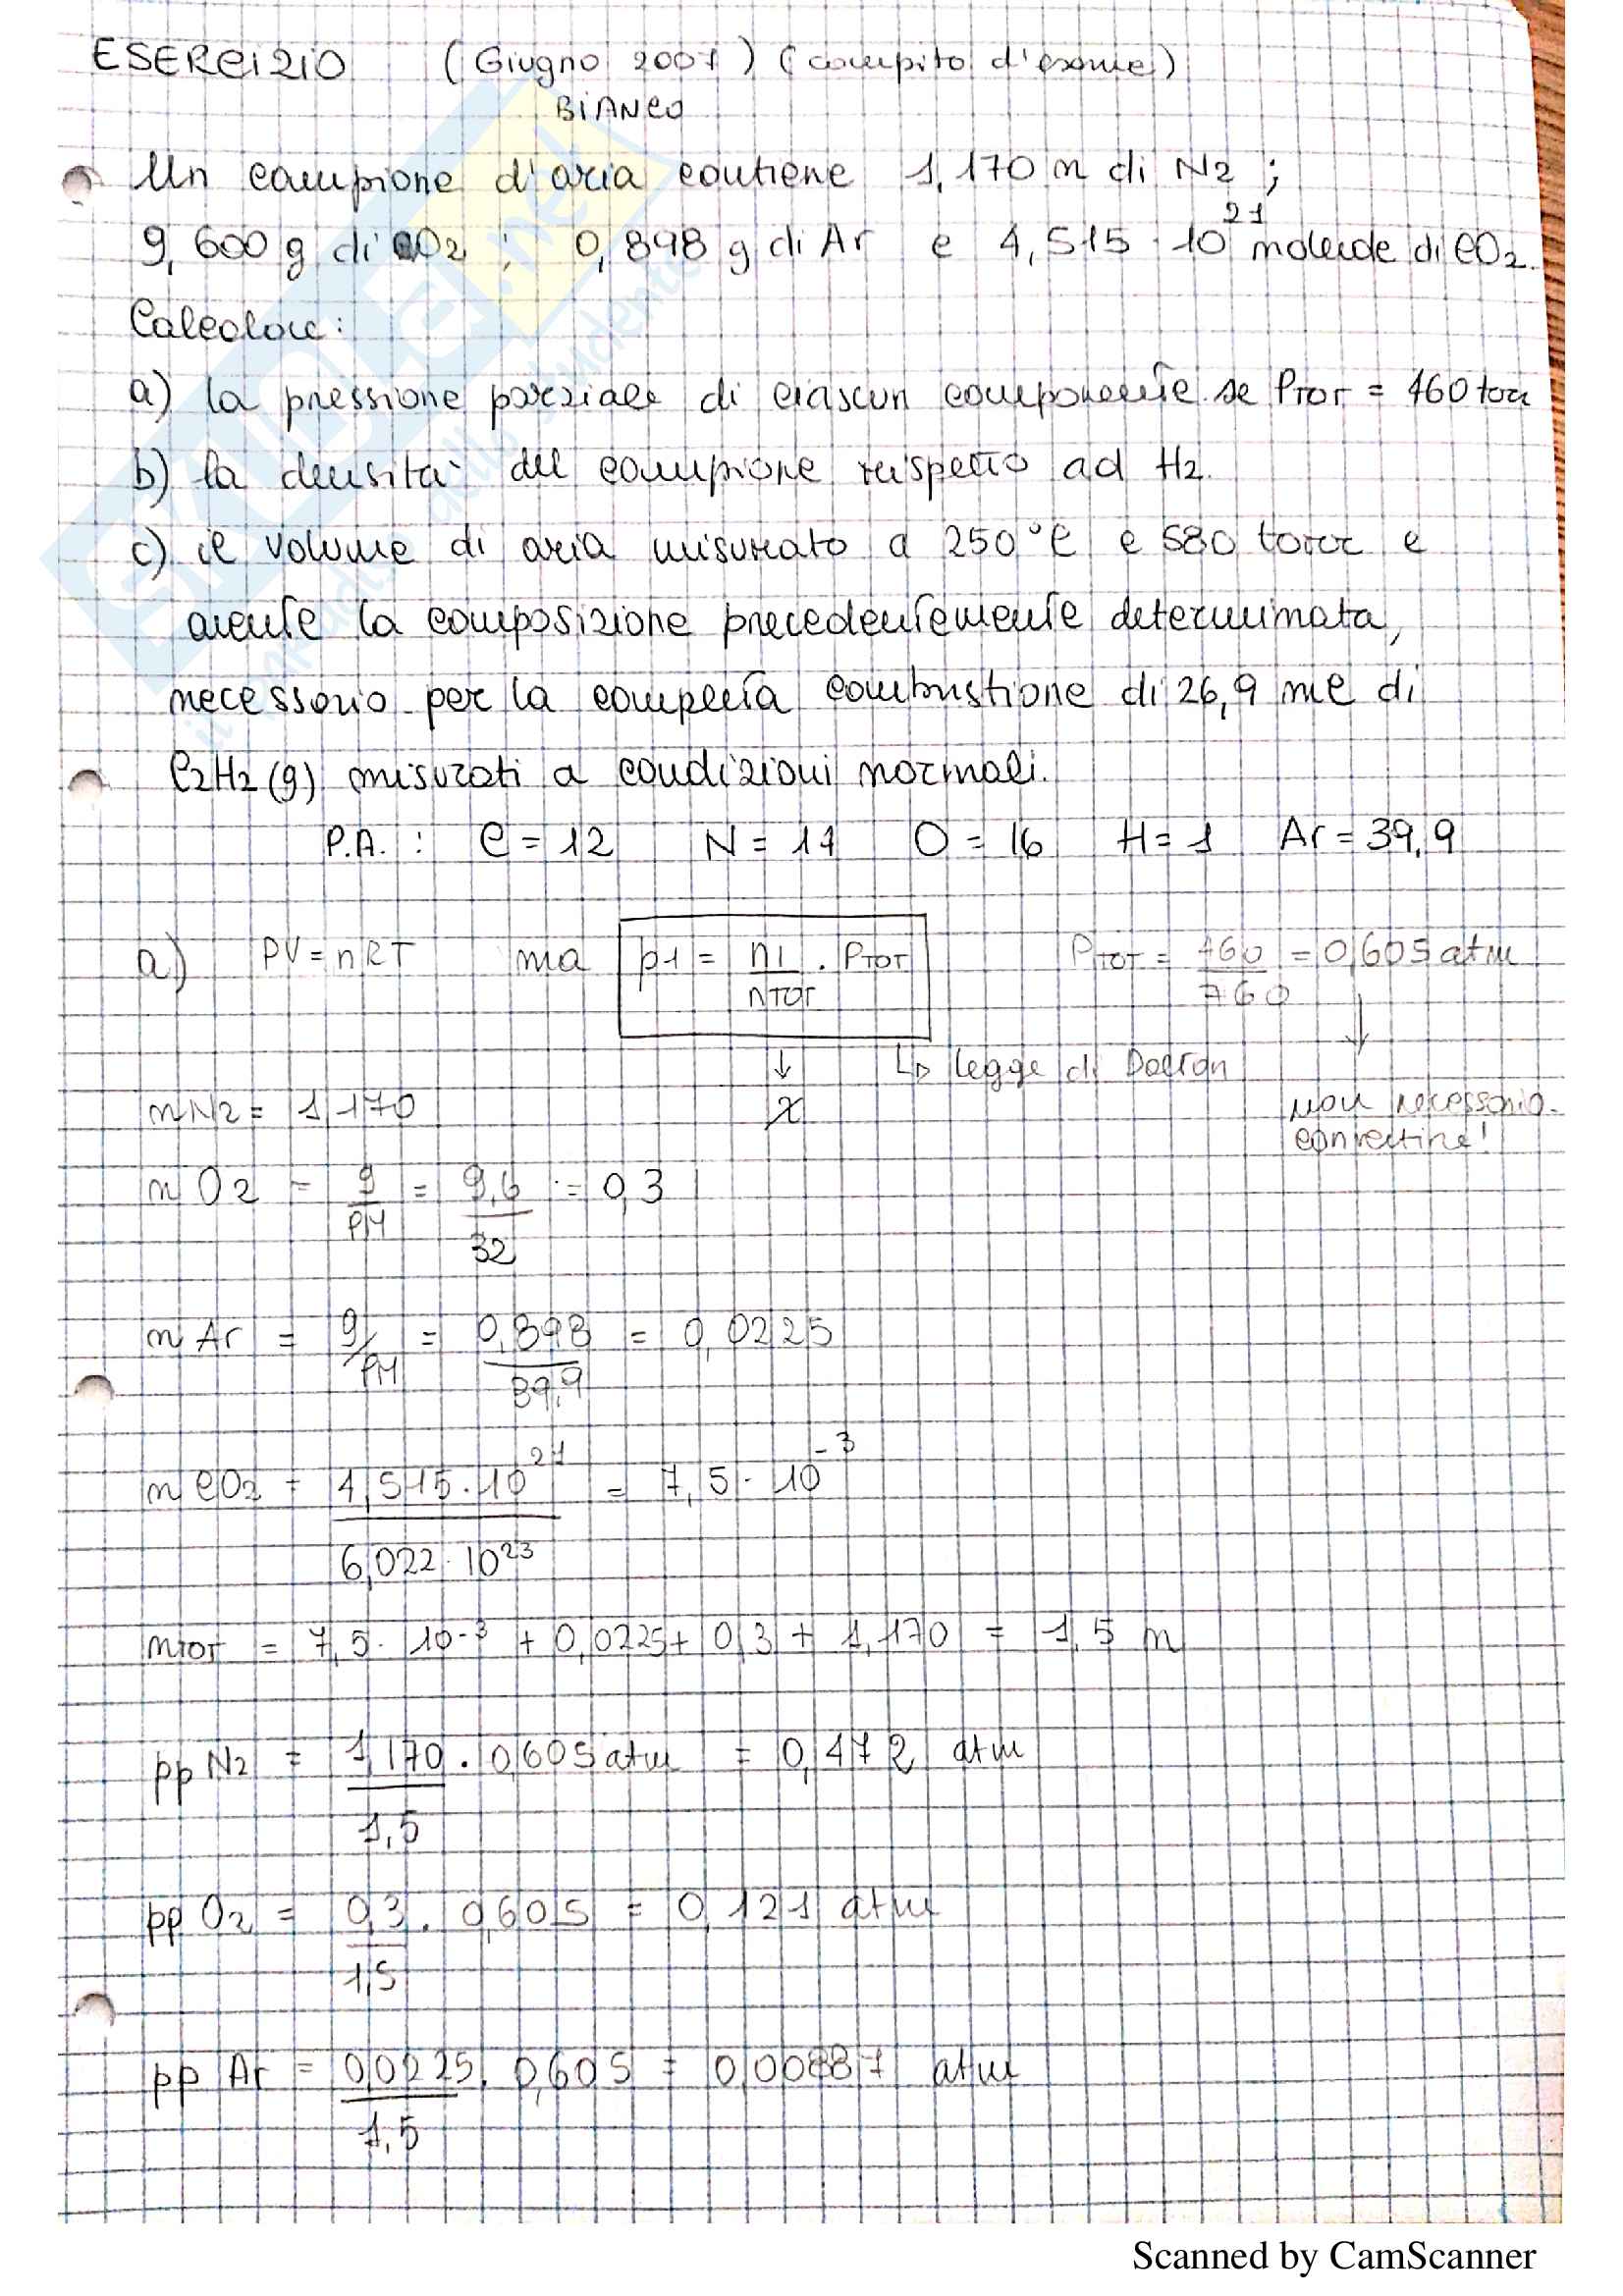 ESERCIZIO (Giugno 2007) (compito d'esame)
BIANCO
Un campione d'aria contiene 1,170 n di N2 ;
9,600 g di O2 ; 0,898 g di Ar e 4,515 · 10^21 molecole di CO2.
Calcolare:
a) la pressione parziale di ciascun componente se PTOT = 460 torr
b) la densita' del campione rispetto ad H2.
c) il volume di aria misurato a 250°C e 580 torr e
avente la composizione precedentemente determinata,
necessario per la completa combustione di 26,9 ml di
C2H2 (g) misurati a condizioni normali.
P.A. : C = 12 N = 14 O = 16 H = 1 Ar = 39,9
a) PV = nRT ma p1 = n1/nTOT · PTOT PTOT = 460/760 = 0,605 atm
↓ ↳ legge di Dalton
χ non necessario
convertire!
nN2 = 1,170
nO2 = g/PM = 9,6/32 = 0,3
nAr = g/PM = 0,898/39,9 = 0,0225
nCO2 = 4,515 · 10^21 / 6,022 · 10^23 = 7,5 · 10^-3
nTOT = 7,5 · 10^-3 + 0,0225 + 0,3 + 1,170 = 1,5 n
pp N2 = 1,170/1,5 · 0,605 atm = 0,472 atm
pp O2 = 0,3/1,5 · 0,605 = 0,121 atm
pp Ar = 0,0225/1,5 · 0,605 = 0,00887 atm
Scanned by CamScanner